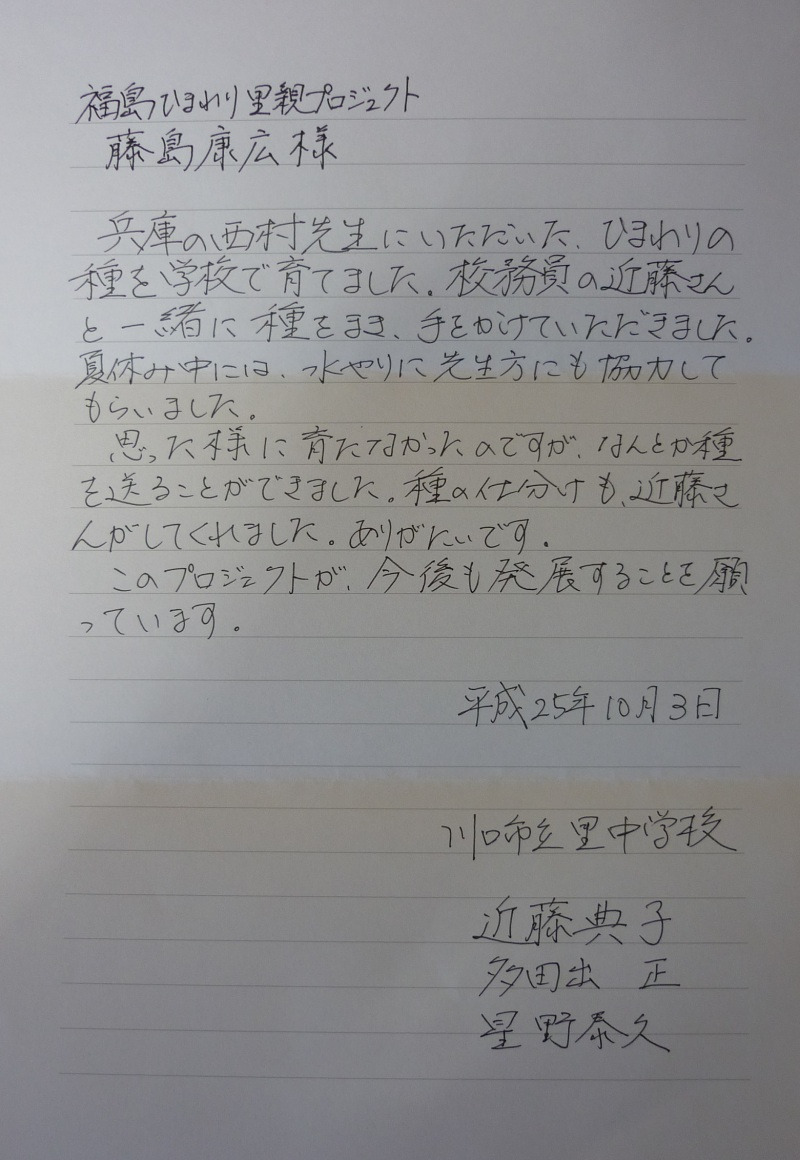 福島ひまわり里親プロジェクト
藤島康広様
兵庫の西村先生にいただいた、ひまわりの
種を学校で育てました。校務員の近藤さん
と一緒に種をまき、手をかけていただきました。
夏休み中には、水やりに先生方にも協力して
もらいました。
思った様に育たなかったのですが、なんとか種
を送ることができました。種の仕分けも、近藤さ
んがしてくれました。ありがたいです。
このプロジェクトが、今後も発展することを願
っています。
平成25年10月3日
川口市立里中学校
近藤典子
多田出 正
星野泰久